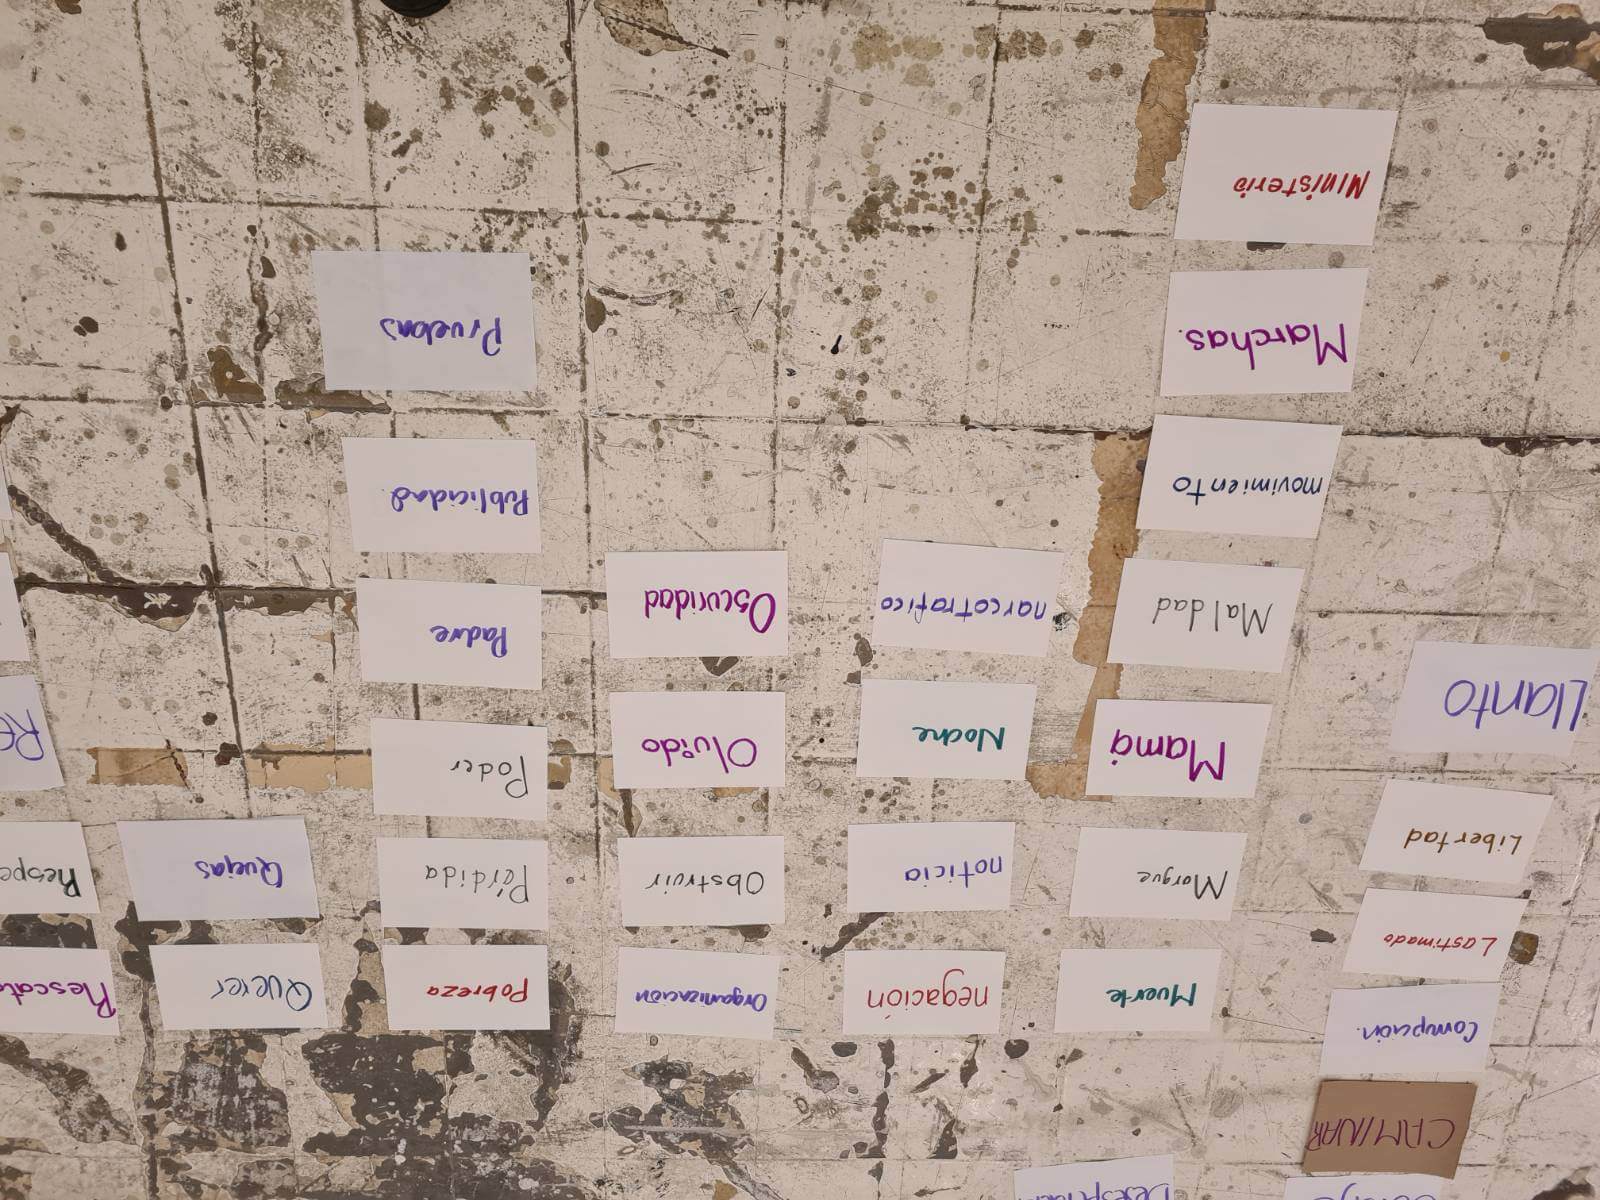 CAMINAR
Corrupción.
Lastimado
Libertad
Llanto
Muerte
Morgue
Mamá
Maldad
movimiento
Marchas.
Ministerio
negación
noticia
Noche
narcotrafico
Organización
Obstruir
Olvido
Oscuridad
Pobreza
Pérdida
Poder
Padre
Publicidad
Pruebas
Querer
Quejas
Rescat
Respe
Re